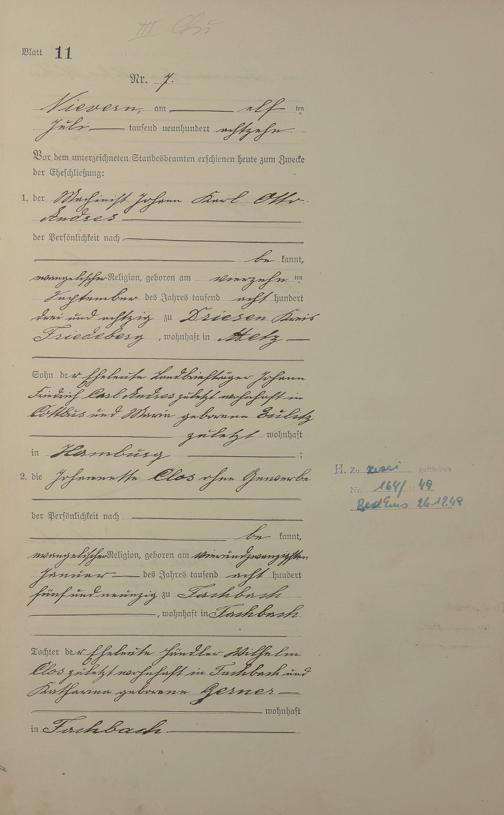 Blatt 11
Nr. 7.
Nievern, am elf ten
Juli tausend neunhundert achtzehn
Vor dem unterzeichneten Standesbeamten erschienen heute zum Zwecke
der Eheschließung:
1. der Machinist Johann Karl Otto
Andres
der Persönlichkeit nach
be kannt,
evangelischer Religion, geboren am vierzehn ten
September des Jahres tausend acht hundert
drei und achtzig zu Driesen Kreis
Friedeberg, wohnhaft in Metz
Sohn der Eheleute Landbriefträger Johann
Friedrich Carl Andres zuletzt wohnhaft in
Cottbus und Marie geborene
zuletzt wohnhaft
in Hamburg ;
2. die Johannette Clos ohne Gewerbe
der Persönlichkeit nach
be kannt,
evangelischer Religion, geboren am vierundzwanzigsten
Januar des Jahres tausend acht hundert
fünf und neunzig zu Fachbach
, wohnhaft in Fachbach
Tochter der Eheleute Händler Wilhelm
Clos zuletzt wohnhaft in Fachbach und
Katharina geborene Gerner
wohnhaft
in Fachbach
H. Zu
Nr. 164/49
26.1.49